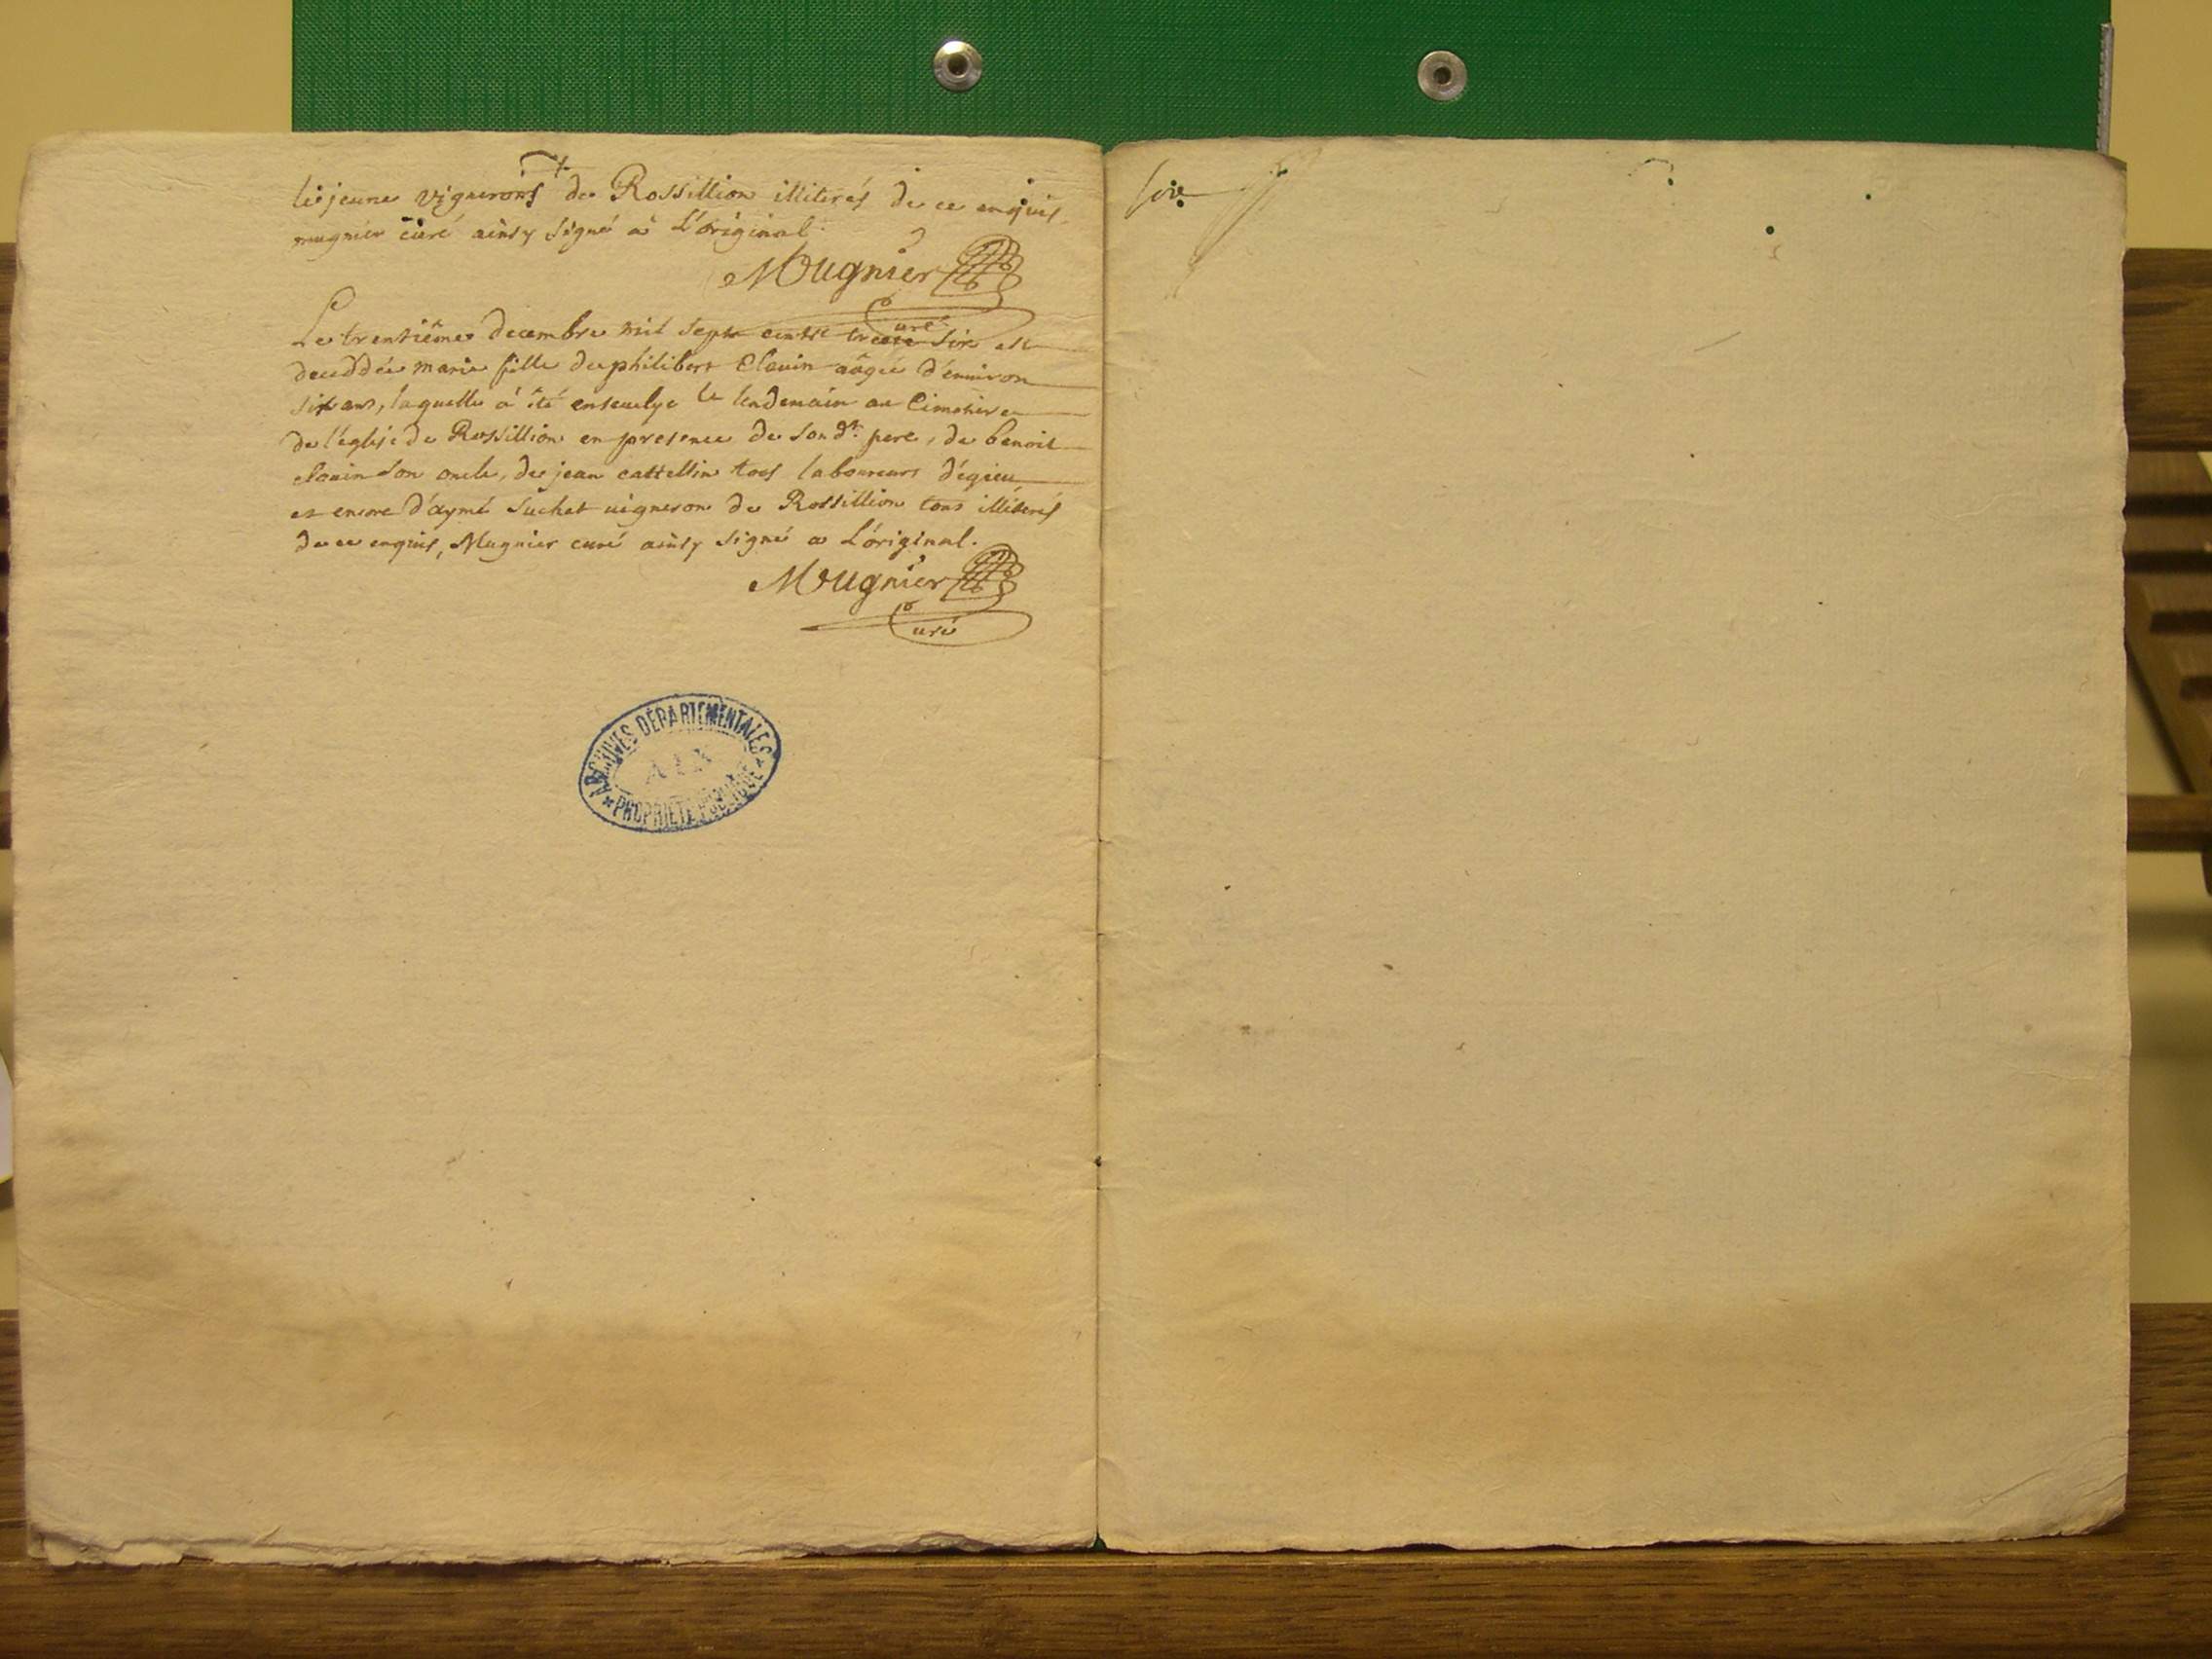 le jeune vignerons de Rossillion illiterés de ce enquis
mugnier curé ainsy signé a L'original.
Mugnier
Curé
Le trentième decembre mil sept cents trente six est
deceddée marie fille de philibert Clavin aâgée d'environ
six ans, laquelle a été ensevelye le lendemain au Cimetiere
de l'église de Rossillion en presence de son dt. pere, de benoit
clavin son oncle, de jean cattellin tous laboureurs d'égieu
et encore d'aymé Suchet vigneron de Rossillion tous illiterés
de ce enquis, Mugnier curé ainsy signé a L'original.
Mugnier
Curé
ARCHIVES DÉPARTEMENTALES
AIN
* PROPRIÉTÉ PUBLIQUE *